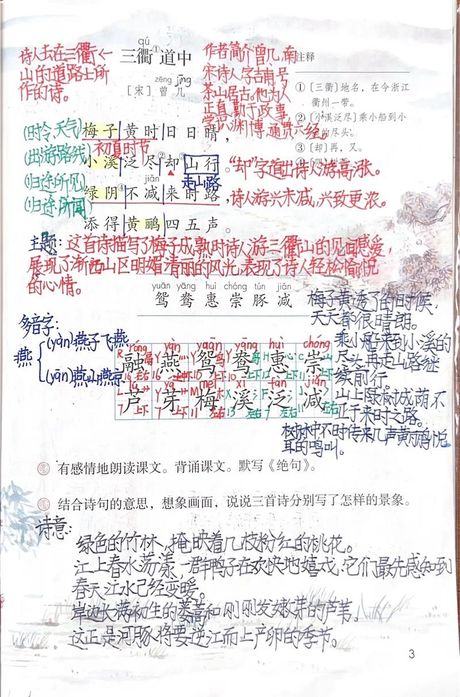 诗人去在三衢
山的道路上所
作的诗。
qú
三衢①道中
zēng jīng
[宋] 曾 几
作者简介曾几,南
宋诗人,字吉甫号
茶山居士。他为人
正直,勤于政事,
学识渊博,通贯六经。
注释
①〔三衢〕地名,在今浙江
衢州一带。
②〔小溪泛尽〕乘小船到小
溪尽头。
③〔却〕再,又。
(时令天气)
梅子黄时日日晴,
初夏时节
(出游路线)
小溪泛尽②却③山行。
走山路
"却"字道出诗人游高涨。
(归途所见)
绿阴不减来时路,
诗人游兴未减,兴致更浓。
(归途所闻)
添得黄鹂四五声。
主题:这首诗描写了梅子成熟时诗人游三衢山的见闻感受,
展现了浙西山区明媚清丽的风光,表现了诗人轻松愉悦
的心情。
yuān yāng huì chóng tún jiǎn
鸳 鸯 惠 崇 豚 减
多音字:
燕
(yàn)燕子飞燕
(yān)燕山燕京
róng yàn yuān yāng huì chóng
融 燕 鸳 鸯 惠 崇
lú yá méi xī fàn jiǎn
芦 芽 梅 溪 泛 减
梅子黄透了的时候,
天天都很晴朗。
乘小船来到小溪的
尽头再走山路继
续前行。
山上绿树成荫,不
亚于来时之路。
树林中不时传来几声黄鹂
耳的鸣叫。
有感情地朗读课文。背诵课文。默写《绝句》。
结合诗句的意思,想象画面,说说三首诗分别写了怎样的景象。
诗意:
绿色的竹林,掩映着几枝粉红的桃花。
江上春水荡漾,一群鸭子在欢快地嬉戏,它们最先感知到
春天江水已经变暖。
岸边长满初生的蒌蒿和刚刚发嫩芽的芦苇,
这正是河豚将要逆江而上产卵的季节。
3